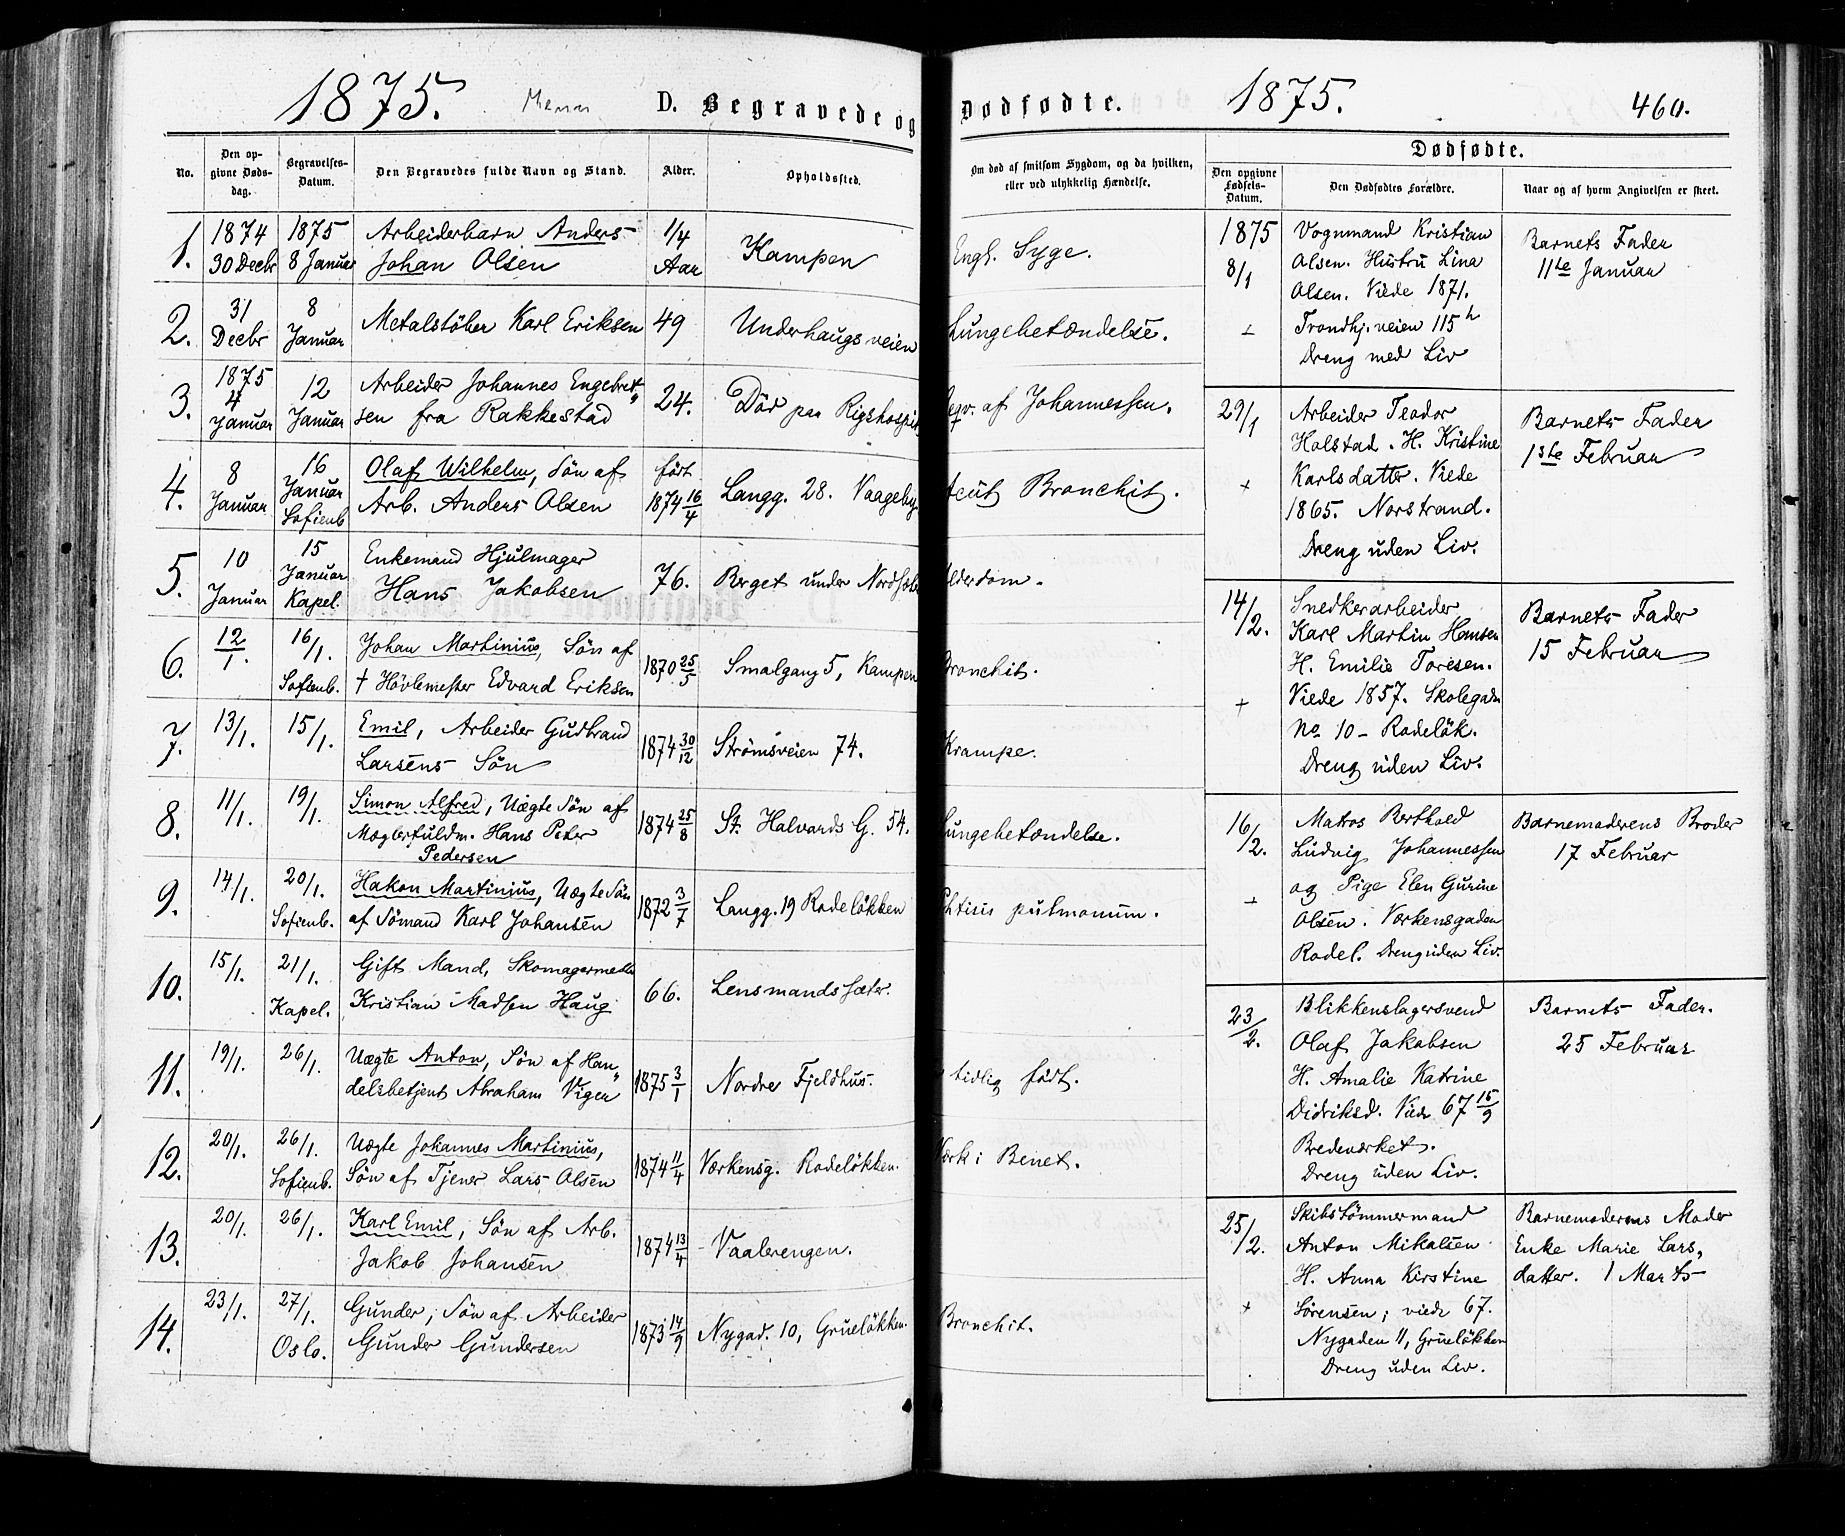 1875. Menn D. Begravede og Dødfødte. 1875. 460.
No.
Den opgivne Dødsdag.
Begravelses-Datum.
Den Begravedes fulde Navn og Stand.
Alder.
Opholdssted.
Om død af smitsom Sygdom, og da hvilken,
eller ved ulykkelig Hændelse.
1. 1874 30 Decbr 1875 8 Januar Arbeiderbarn Anders 1/4 Aar Kampen Engl. Syge.
Johan Olsen
2. 31 Decbr 8 Januar Metalstöber Karl Eriksen 49 Underhaugsveien Lungebetændelse.
3. 1875 4 Januar 12 Januar Arbeider Johannes Engebret„ 24. Död paa Rigshospit af Johannessen.
sen fra Rakkestad
4. 8 Januar 16 Januar Sofienb Olaf Wilhelm, Sön af født 1874 16/4 Langg. 28. Vaageby. Acut Bronchit.
Arb. Anders Olsen
5. 10 Januar 15 Januar Kapel. Enkemand Hjulmager 76. Berget under Alderdom.
Hans Jakobsen
6. 12/1. 16/1. Sofienb. Johan Martinius, Sön af 1870 25/5 Smalgang 5, Kampen Bronchit.
† Hövlemester Edvard Eriksen
7. 13/1. 15/1. Emil, Arbeider Gudbrand 1874 30/12 Strömsveien 74. Krampe.
Larsens Sön
8. 11/1. 19/1. Simon Alfred, Uægte Sön af 1874 25/8 St. Halvards G. 54. Lungebetændelse.
Mæglerfuldm. Hans Peter
Pedersen
9. 14/1. 20/1. Sofienb. Hakon Martinius, Uægte Sön 1872 3/7 Langg. 19 Rodelökken Phtisis pulmonum.
af Sömand Karl Johansen
10. 15/1. 21/1. Kapel. Gift Mand, Skomagermester 66. Lensmandssæter.
Kristian Madsen Haug
11. 19/1. 26/1. Uægte Anton, Sön af Han„ 1875 3/1 Nordre Fjeldhus. tidlig født.
delsbetjent Abraham Vigen
12. 20/1. 26/1. Sofienb. Uægte Johannes Martinius, 1874 11/4 Værkensg. Rodelökken. Værk i Benet.
Sön af Tjener Lars Olsen
13. 20/1. 26/1. Karl Emil, Sön af Arb. 1874 13/4 Vaalerengen.
Jakob Johansen
14. 23/1. 27/1. Oslo. Gunder, Sön af Arbeider 1873 14/9 Nygad. 10, Gruelökken. Bronchit.
Gunder Gundersen
Dødfødte.
Den opgivne Fødsels-Datum.
Den Dødfødtes Forældre.
Naar og af hvem Angivelsen er skeet.
1875 8/1 +
Vognmand Kristian
Olsen. Hustru Lina
Olsen. Viede 1871.
Trondhj.veien 115 h
Dreng med Liv
Barnets Fader
11te Januar
29/1 +
Arbeider Teodor
Holstad. H. Kristine
Karlsdatter. Viede
1865. Norstrand.
Dreng uden Liv.
Barnets Fader
1ste Februar
14/2. +
Snedkerarbeider
Karl Martin Hansen
H. Emilie Toresen.
Viede 1857. Skolegaden
No 10 - Rodelök.
Dreng uden Liv.
Barnets Fader
15 Februar
16/2. +
Matros Berthold
Ludvig Johannessen
og Pige Elen Gurine
Olsen. Værkensgaden
Rodel. Dreng uden Liv.
Barnemoderens Broder
17 Februar
23/2.
Blikkenslagersvend
Olaf Jakobsen
H. Amalie Katrine
Didriksd. Viede 67 15/9
Bredeværket.
Dreng uden Liv.
Barnets Fader.
25 Februar
25/2. +
Skibstömmermand
Anton Mikalsen
H. Anna Kirstine
Sörensen; viede 67.
Nygaden 11, Gruelökken
Dreng uden Liv.
Barnemoderens Moder
Enke Marie Lars„
datter. 1 Marts